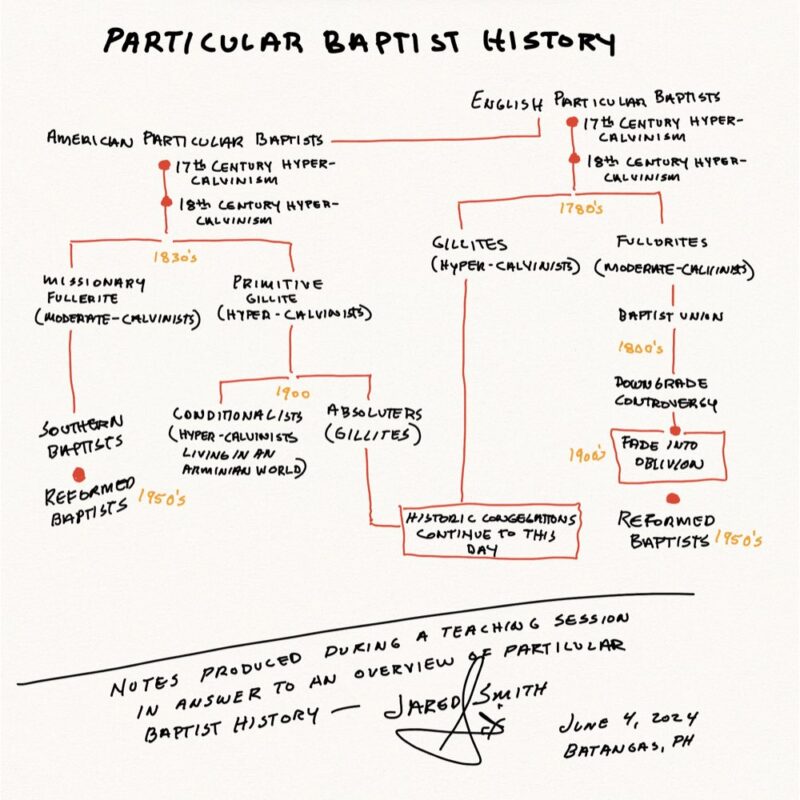 PARTICULAR BAPTIST HISTORY
ENGLISH PARTICULAR BAPTISTS
17th CENTURY HYPER-
CALVINISM
18th CENTURY HYPER-
CALVINISM
1780's
GILLITES
(HYPER-CALVINISTS)
FULLORITES
(MODERATE-CALVINISTS)
BAPTIST UNION
1800's
DOWNGRADE
CONTROVERSY
1900's
FADE INTO
OBLIVION
REFORMED
BAPTISTS 1950's
AMERICAN PARTICULAR BAPTISTS
17th CENTURY HYPER-
CALVINISM
18th CENTURY HYPER-
CALVINISM
1830's
MISSIONARY
FULLERITE
(MODERATE-CALVINISTS)
PRIMITIVE
GILLITE
(HYPER-CALVINISTS)
1900
SOUTHERN
BAPTISTS
REFORMED
BAPTISTS 1950's
CONDITIONALISTS
(HYPER-CALVINISTS
LIVING IN AN
ARMINIAN WORLD)
ABSOLUTERS
(GILLITES)
HISTORIC CONGEGATIONS
CONTINUE TO THIS
DAY
NOTES PRODUCED DURING A TEACHING SESSION
IN ANSWER TO AN OVERVIEW OF PARTICULAR
BAPTIST HISTORY — JARED SMITH
JUNE 4, 2024
BATANGAS, PH